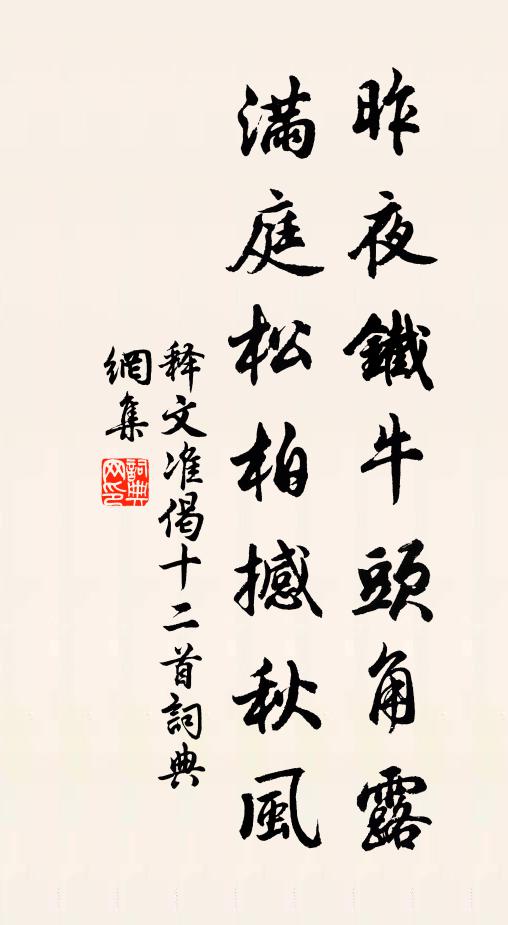 昨夜鐵牛頭角露
滿庭松柏撼秋風
释文准偈十二首詞典
網集
詞典網印